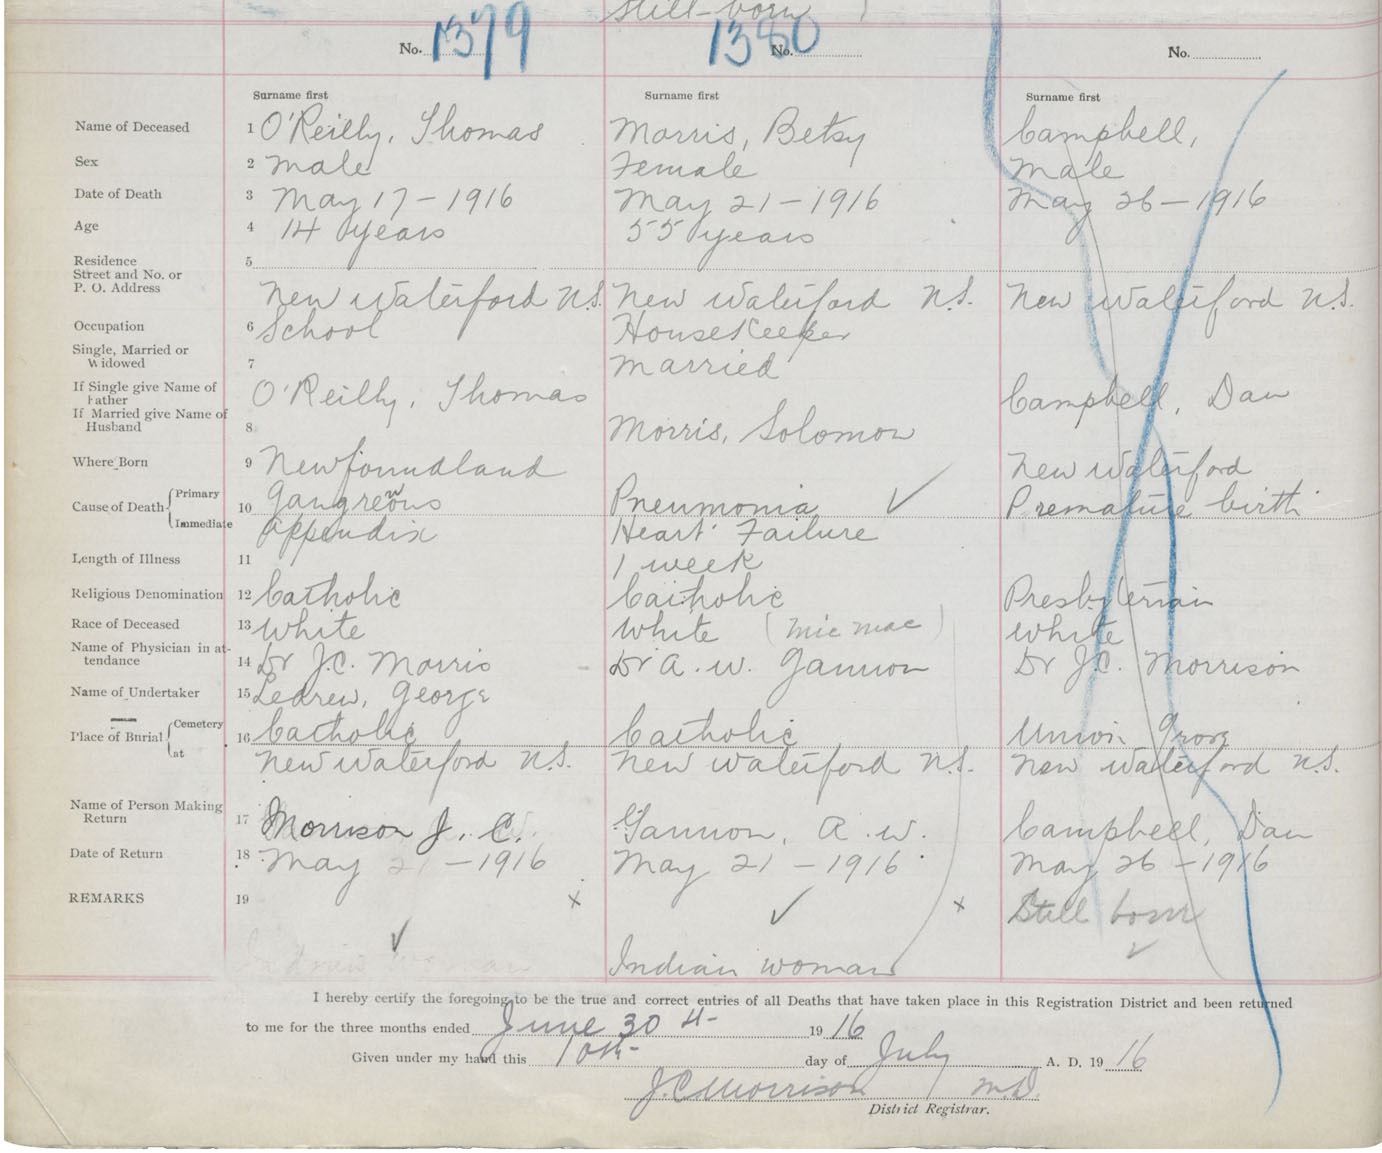 Still-born
No. 1379
1380 No.
No.
Surname first Surname first Surname first
Name of Deceased 1 O'Reilly, Thomas Morris, Betsy Campbell,
Sex 2 male Female male
Date of Death 3 May 17 - 1916 May 21 - 1916 May 26 - 1916
Age 4 14 years 55 years
Residence 5
Street and No. or
P. O. Address
New Waterford N.S. New Waterford N.S. New Waterford N.S.
Occupation 6 School HouseKeeper
Single, Married or
Widowed 7 married
If Single give Name of
Father O'Reilly, Thomas Campbell, Dan
If Married give Name of
Husband 8 Morris, Solomon
Where Born 9 Newfoundland New Waterford
Cause of Death { Primary 10 Gangreous Pneumonia ✓ Premature birth
Immediate appendix Heart Failure
Length of Illness 11 1 week
Religious Denomination 12 Catholic Catholic Presbyterian
Race of Deceased 13 White White (mic mac) White
Name of Physician in at-
tendance 14 Dr J.C. Morris Dr A. W. Gannon Dr J.C. Morrison
Name of Undertaker 15 Ledrew, George
Place of Burial { Cemetery 16 Catholic Catholic Union Grove
at New Waterford N.S. New Waterford N.S. New Waterford N.S.
Name of Person Making
Return 17 Morrison J. C. Gannon, A. W. Campbell, Dan
Date of Return 18 May 21 - 1916 May 21 - 1916 May 26 - 1916
REMARKS 19 x ✓ x Still born
✓ ✓
Indian woman Indian woman
I hereby certify the foregoing to be the true and correct entries of all Deaths that have taken place in this Registration District and been returned
to me for the three months ended June 30th 1916
Given under my hand this 10th day of July A. D. 1916
J.C. Morrison M.D.
District Registrar.